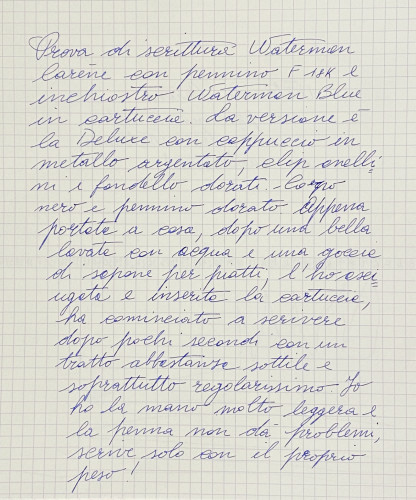 Prova di scrittura Waterman
Carène con pennino F 18K e
inchiostro Waterman Blue
in cartuccia. La versione è
la Deluxe con cappuccio in
metallo argentato, clip anelli=
ni e fondello dorati. Corpo
nero e pennino dorato Appena
portata a casa, dopo una bella
lavata con acqua e una goccia
di sapone per piatti, l'ho asci=
ugata e inserita la cartuccia,
ha cominciato a scrivere
dopo pochi secondi con un
tratto abbastanza sottile e
soprattutto regolarissimo. Io
ho la mano molto leggera e
la penna non dà problemi,
scrive solo con il proprio
peso!